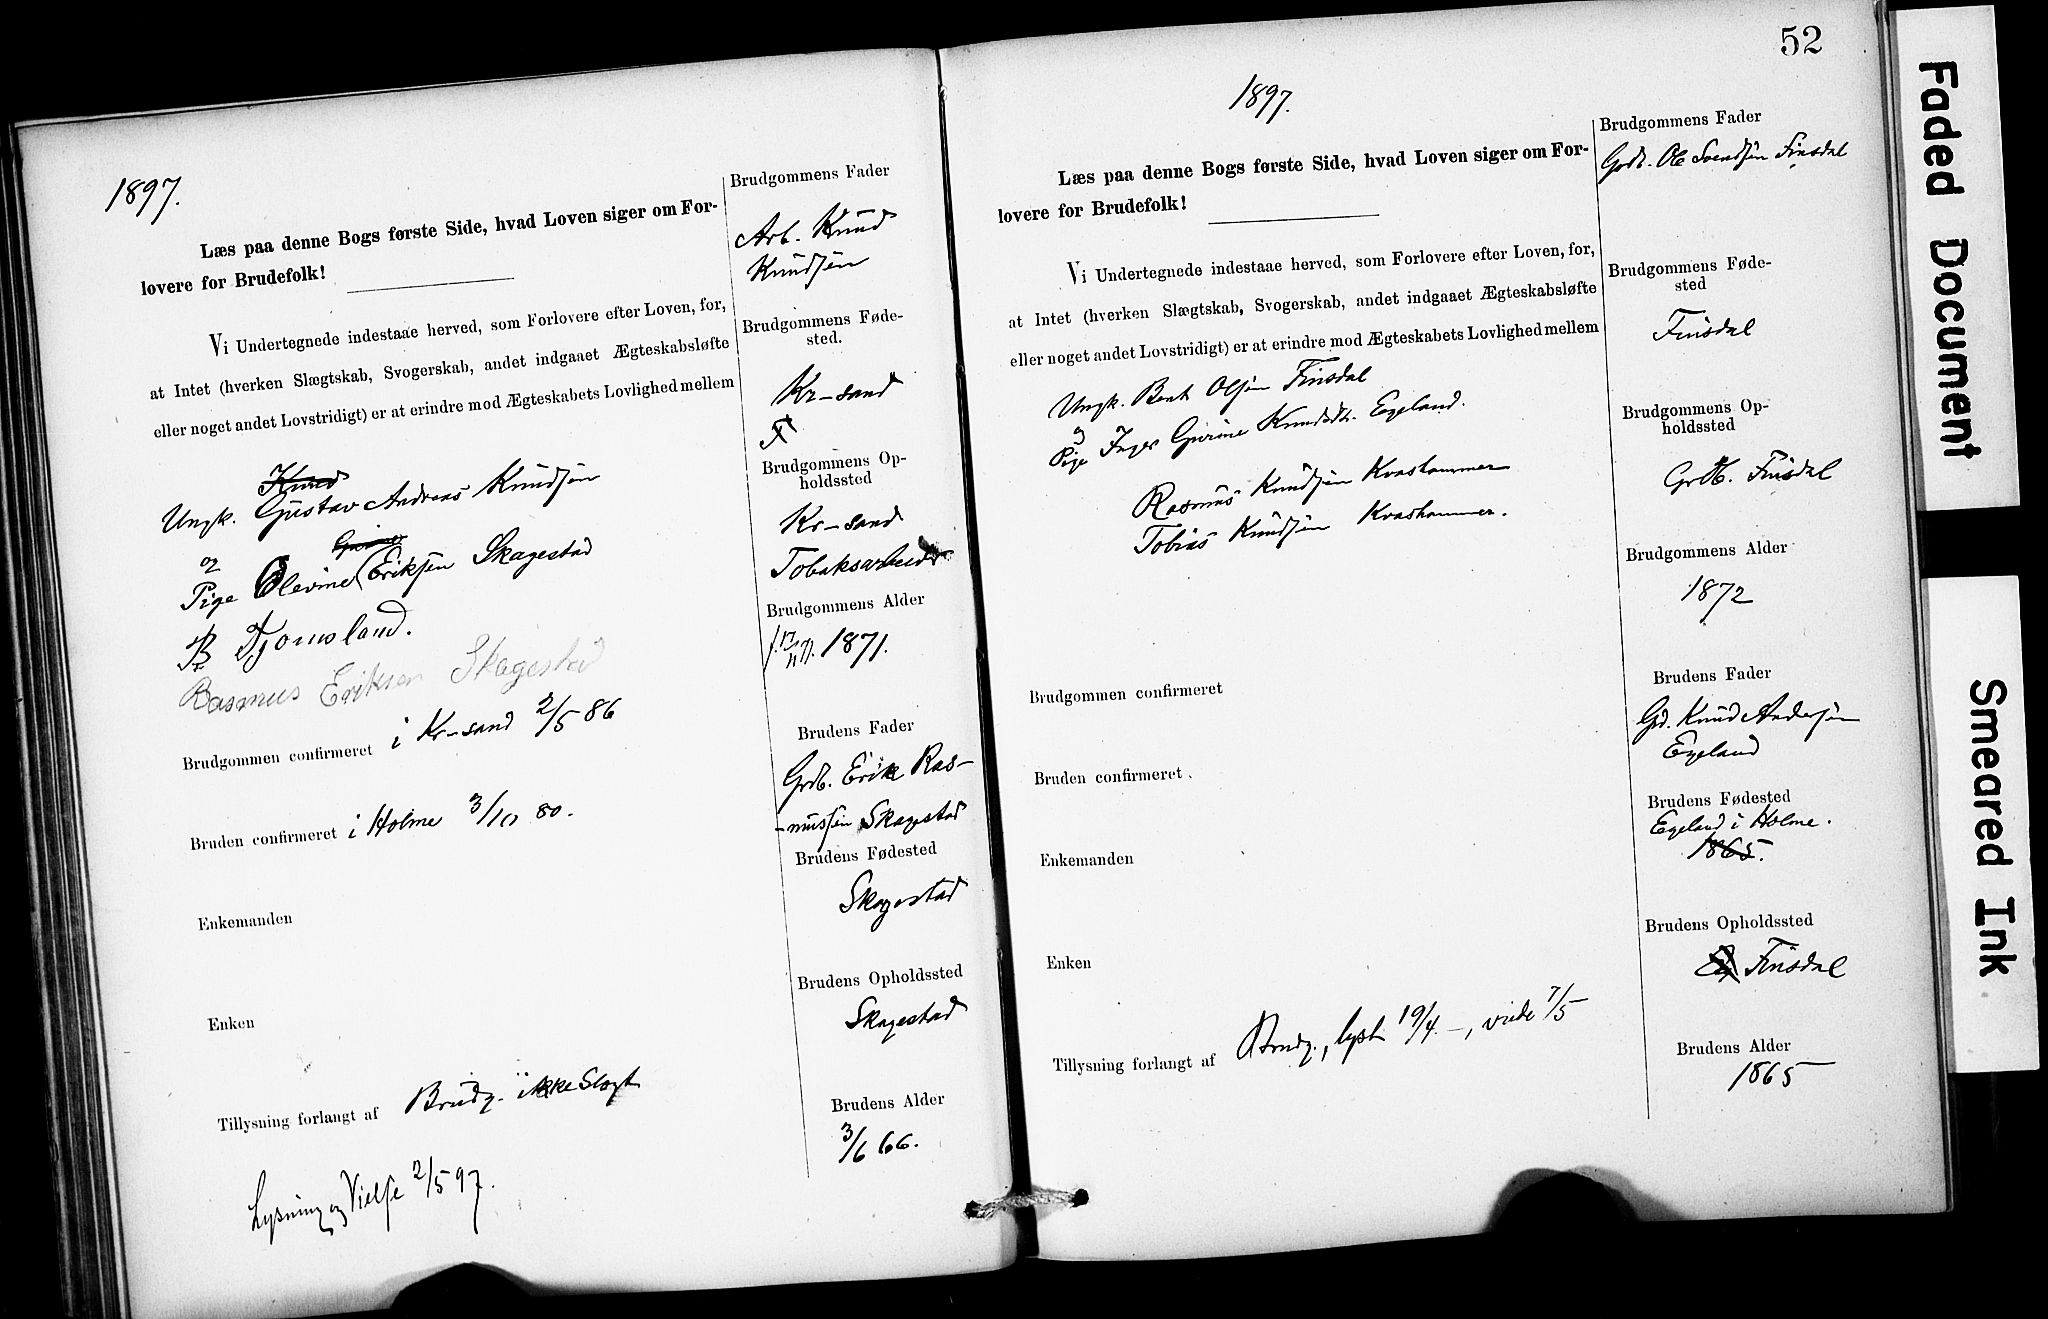 1897.
Læs paa denne Bogs første Side, hvad Loven siger om For-
lovere for Brudefolk!
Vi Undertegnede indestaae herved, som Forlovere efter Loven, for,
at Intet (hverken Slægtskab, Svogerskab, andet indgaaet Ægteskabsløfte
eller noget andet Lovstridigt) er at erindre mod Ægteskabets Lovlighed mellem
Knud
Ungk. Gustav Andreas Knudsen
og
Pige Olevine Eriksen Skagestad
B Tjomsland.
Rasmus Eriksen Skagestad
Brudgommen confirmeret i Kr-sand 2/5 86
Bruden confirmeret i Holme 3/10 80.
Enkemanden
Enken
Tillysning forlangt af Brudg. ikke Slægt
Lysning og Vielse 2/5 97.
Brudgommens Fader
Arb. Knud
Knudsen
Brudgommens Føde-
sted.
Kr-sand
Brudgommens Op-
holdssted
Kr-sand
Tobaksarbeider
Brudgommens Alder
1871.
Brudens Fader
Grdb. Erik Ras-
-mussen Skagestad
Brudens Fødested
Skagestad
Brudens Opholdssted
Skagestad
Brudens Alder
3/6 66.
52
1897.
Læs paa denne Bogs første Side, hvad Loven siger om For-
lovere for Brudefolk!
Vi Undertegnede indestaae herved, som Forlovere efter Loven, for,
at Intet (hverken Slægtskab, Svogerskab, andet indgaaet Ægteskabsløfte
eller noget andet Lovstridigt) er at erindre mod Ægteskabets Lovlighed mellem
Ungk. Bent Olsen Finsdal
og
Pige Inger Gurine Knudsdtr. Egeland.
Rasmus Knudsen Kvashammer
Tobias Knudsen Kvashammer.
Brudgommen confirmeret
Bruden confirmeret.
Enkemanden
Enken
Tillysning forlangt af Brudg., lyst 19/4 -, viede 7/5
Brudgommens Fader
Grdb. Ole Svendsen Finsdal
Brudgommens Føde-
sted
Finsdal
Brudgommens Op-
holdssted
Grdb. Finsdal
Brudgommens Alder
1872
Brudens Fader
Gd. Knud Andersen
Egeland
Brudens Fødested
Egeland i Holme.
1865.
Brudens Opholdssted
Finsdal
Brudens Alder
1865
Faded Document
Smeared Ink